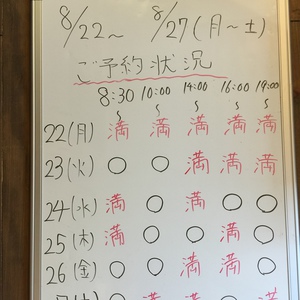 8/22〜 8/27(月〜土)
ご予約状況
8:30 10:00 14:00 16:00 19:00
〜 〜 〜 〜 〜
22(月) 満 満 満 満 満
23(火) ○ ○ 満 満 満
24(水) 満 ○ 満 ○ ○
25(木) 満 ○ ○ ○ 満
26(金) ○ ○ 満 満 ○